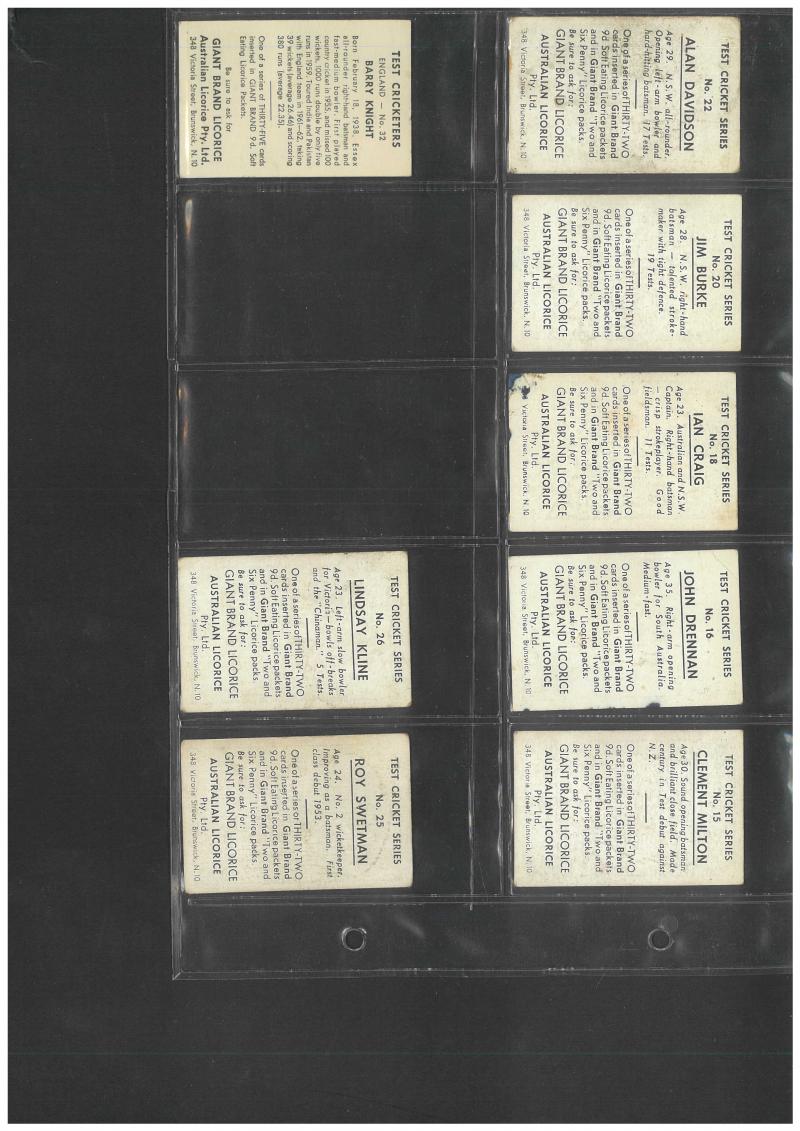 TEST CRICKET SERIES
No. 22
ALAN DAVIDSON
Age 29. N.S.W. all-rounder.
Opening left-arm bowler and
hard-hitting batsman. 17 Tests.
One of a series of THIRTY-TWO
cards inserted in Giant Brand
9d. Soft Eating Licorice packets
and in Giant Brand "Two and
Six Penny" Licorice packs.
Be sure to ask for:
GIANT BRAND LICORICE
AUSTRALIAN LICORICE
Pty. Ltd.
348 Victoria Street, Brunswick, N.10
TEST CRICKET SERIES
No. 20
JIM BURKE
Age 28. N.S.W. right-hand
batsman — talented stroke-
maker with tight defence.
19 Tests.
One of a series of THIRTY-TWO
cards inserted in Giant Brand
9d. Soft Eating Licorice packets
and in Giant Brand "Two and
Six Penny" Licorice packs.
Be sure to ask for:
GIANT BRAND LICORICE
AUSTRALIAN LICORICE
Pty. Ltd.
348 Victoria Street, Brunswick, N.10
TEST CRICKET SERIES
No. 18
IAN CRAIG
Age 23. Australian and N.S.W.
Captain. Right-hand batsman
— crisp strokeplayer. Good
fieldsman. 11 Tests.
One of a series of THIRTY-TWO
cards inserted in Giant Brand
9d. Soft Eating Licorice packets
and in Giant Brand "Two and
Six Penny" Licorice packs.
Be sure to ask for:
GIANT BRAND LICORICE
AUSTRALIAN LICORICE
Pty. Ltd.
Victoria Street, Brunswick, N.10
TEST CRICKET SERIES
No. 16
JOHN DRENNAN
Age 35. Right-arm opening
bowler for South Australia.
Medium-fast.
One of a series of THIRTY-TWO
cards inserted in Giant Brand
9d. Soft Eating Licorice packets
and in Giant Brand "Two and
Six Penny" Licorice packs.
Be sure to ask for:
GIANT BRAND LICORICE
AUSTRALIAN LICORICE
Pty. Ltd.
348 Victoria Street, Brunswick, N.10
TEST CRICKET SERIES
No. 15
CLEMENT MILTON
Age 30. Sound opening batsman
and brilliant close field. Made
century in Test debut against
N.Z.
One of a series of THIRTY-TWO
cards inserted in Giant Brand
9d. Soft Eating Licorice packets
and in Giant Brand "Two and
Six Penny" Licorice packs.
Be sure to ask for:
GIANT BRAND LICORICE
AUSTRALIAN LICORICE
Pty. Ltd.
348 Victoria Street, Brunswick, N.10
TEST CRICKETERS
ENGLAND — No. 32
BARRY KNIGHT
Born February 18, 1938, Essex
all-rounder right-hand batsman and
fast-medium bowler. First played
country cricket in 1955, and missed 100
wickets, 1000 runs double by only five
runs in 1959. Toured India and Pakistan
with England team in 1961-62, taking
39 wickets (average 26.46) and scoring
380 runs (average 22.35).
One of a series of THIRTY-FIVE cards
inserted in GIANT BRAND 9'd. Soft
Eating Licorice Packets.
Be sure to ask for
GIANT BRAND LICORICE
Australian Licorice Pty. Ltd.
348 Victoria Street, Brunswick, N.10
TEST CRICKET SERIES
No. 26
LINDSAY KLINE
Age 23. Left-arm slow bowler
for Victoria—bowls off-breaks
and the "Chinaman." 5 Tests.
One of a series of THIRTY-TWO
cards inserted in Giant Brand
9d. Soft Eating Licorice packets
and in Giant Brand "Two and
Six Penny" Licorice packs.
Be sure to ask for:
GIANT BRAND LICORICE
AUSTRALIAN LICORICE
Pty. Ltd.
348 Victoria Street, Brunswick, N.10
TEST CRICKET SERIES
No. 25
ROY SWETMAN
Age 24. No. 2 wicketkeeper.
Improving as a batsman. First
class debut 1953.
One of a series of THIRTY-TWO
cards inserted in Giant Brand
9d. Soft Eating Licorice packets
and in Giant Brand "Two and
Six Penny" Licorice packs.
Be sure to ask for:
GIANT BRAND LICORICE
AUSTRALIAN LICORICE
Pty. Ltd.
348 Victoria Street, Brunswick, N.10